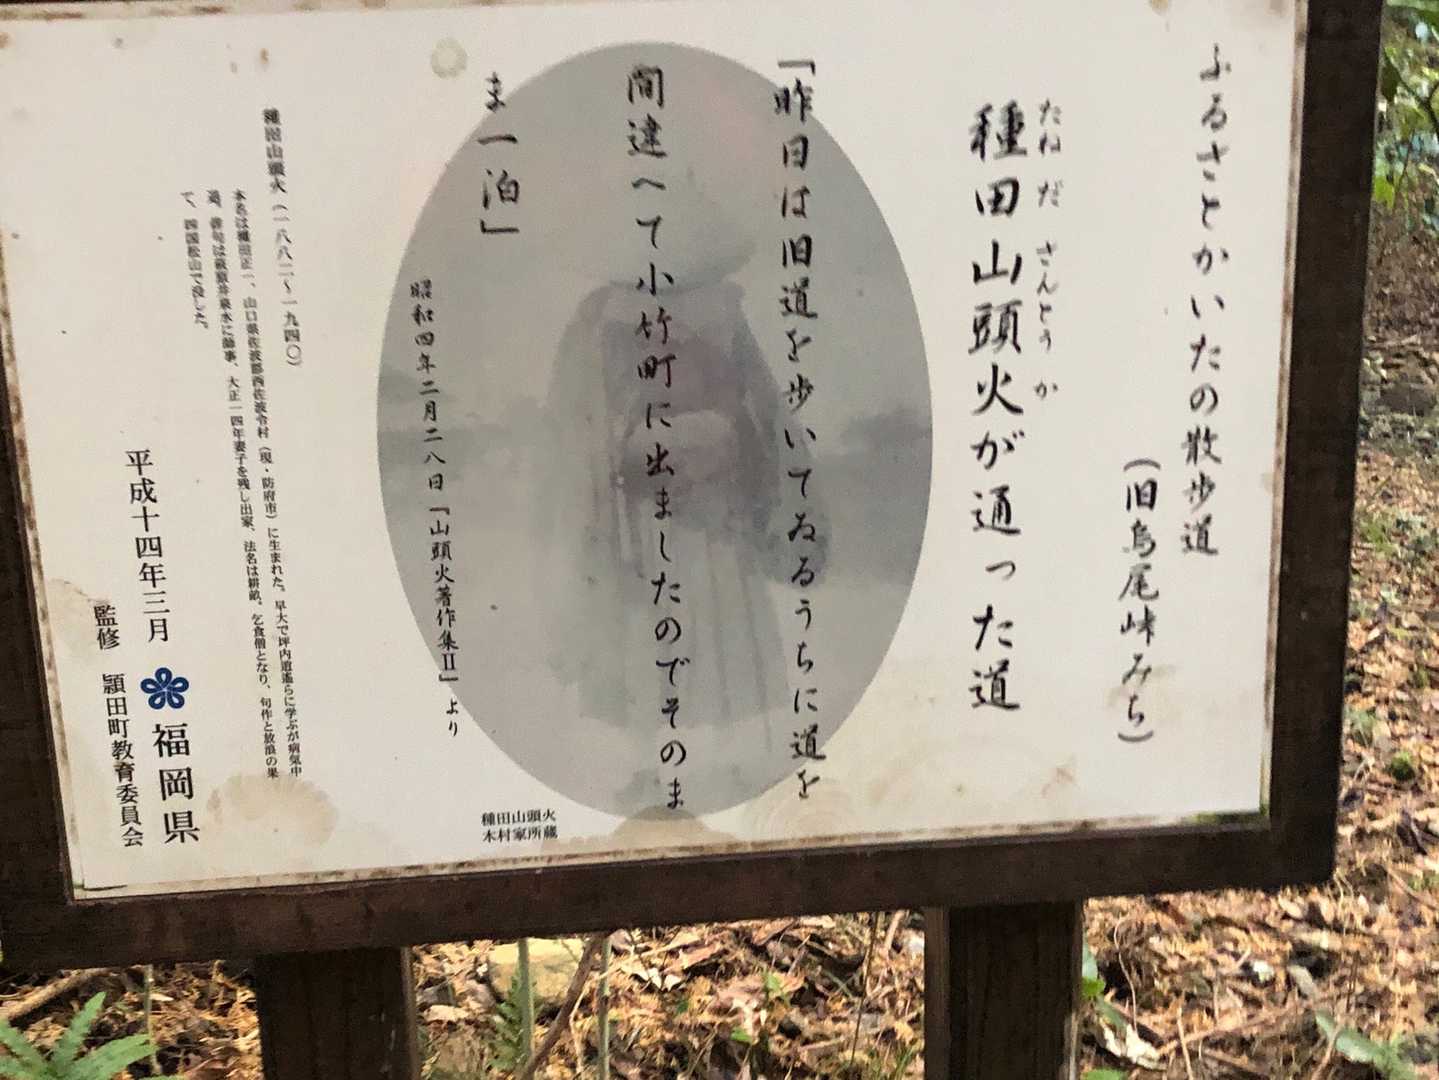 ふるさとかいたの散歩道
(旧烏尾峠みち)
たねだ さんとうか
種田山頭火が通った道
「昨日は旧道を歩いてゐるうちに道を
間違へて小竹町に出ましたのでそのま
ま一泊」
昭和四年二月二八日「山頭火著作集Ⅱ」より
種田山頭火
木村家所蔵
種田山頭火(一八八二〜一九四〇)
本名は種田正一、山口県佐波郡西佐波令村(現・防府市)に生まれた。早大で坪内逍遙らに学ぶが病気中
退。俳句は萩原井泉水に師事、大正一四年妻子を残し出家、法名は耕畝。乞食僧となり、句作と放浪の果
て、四国松山で没した。
平成十四年三月 福岡県
監修 頴田町教育委員会